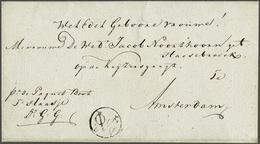 Wel Edele Geboore vrouwe!
Mevrouwe De Wed. Jacob Noorthoorn gt
Haesebroek
op de Keijzersgragt
Te
Amsterdam
pr. de Paquet Boot
't Haasje
D: G. G.